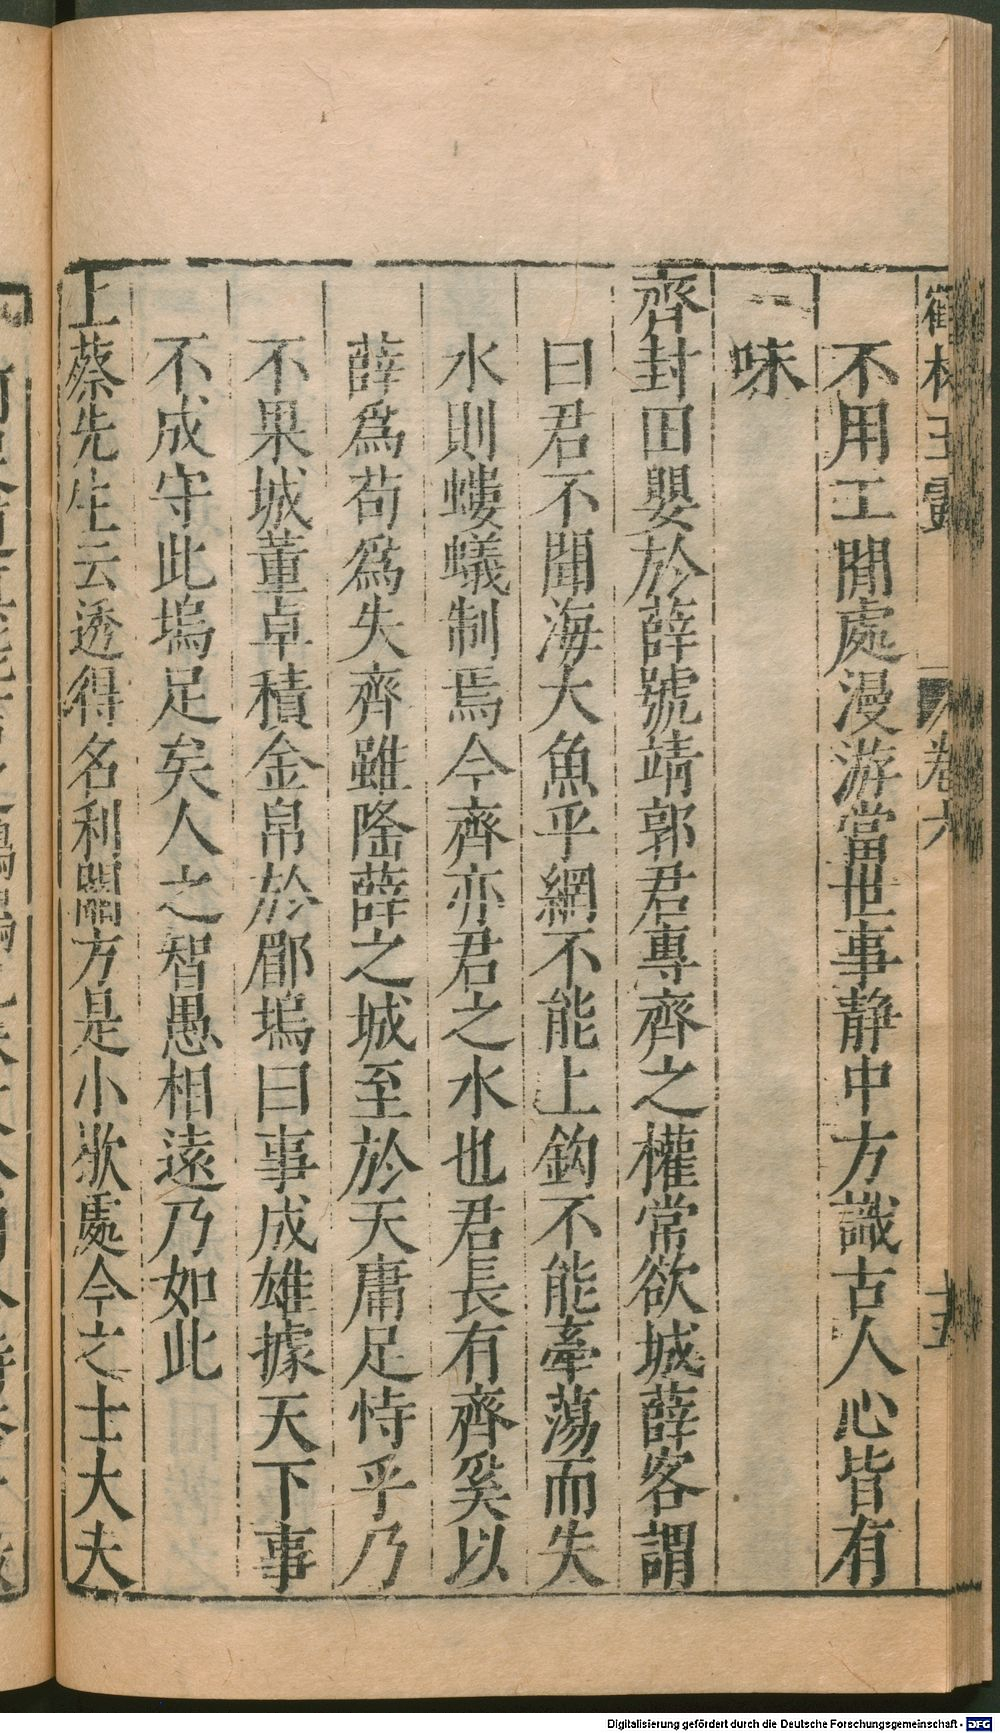 鶴林玉露 卷六 十五
不用工閒處漫游當世事靜中方識古人心皆有
味
齊封田嬰於薛號靖郭君專齊之權常欲城薛客謂
曰君不聞海大魚乎網不能上鈎不能牽蕩而失
水則螻蟻制焉今齊亦君之水也君長有齊奚以
薛爲苟爲失齊雖隆薛之城至於天庸足恃乎乃
不果城董卓積金帛於郿塢曰事成雄據天下事
不成守此塢足矣人之智愚相遠乃如此
上蔡先生云透得名利關方是小歇處今之士大夫
Digitalisierung gefördert durch die Deutsche Forschungsgemeinschaft - DFG